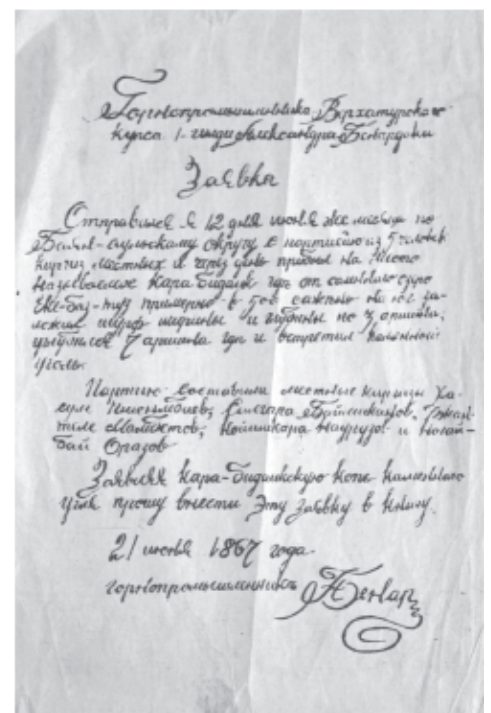 Горнопромышленника Верхотурского
купца 1. гильди Александра Бенардаки
Заявка
Отправился я 12 дня июня же месяца по
Баян-аульскому округу с партиею из 5 человек
киргиз местных и чрез день прибыл на место
называемое Кара-бидаик где от соленого озеро
Еке-баз-туз примерно в 500 сажень на юг за-
ложил шурф ширины и глубины по 3 аршина,
7 аршина где и встретил каменный
уголь.
Партию составили местные киргизы Ха-
Байтикинов,
Койшикара Наурузов и Ногай-
бай Оразов
Заявляя Кара-бидаикскую копь каменного
угля прошу внести эту заявку в книгу.
21 июня 1867 года.
горнопромышленникъ АБенар